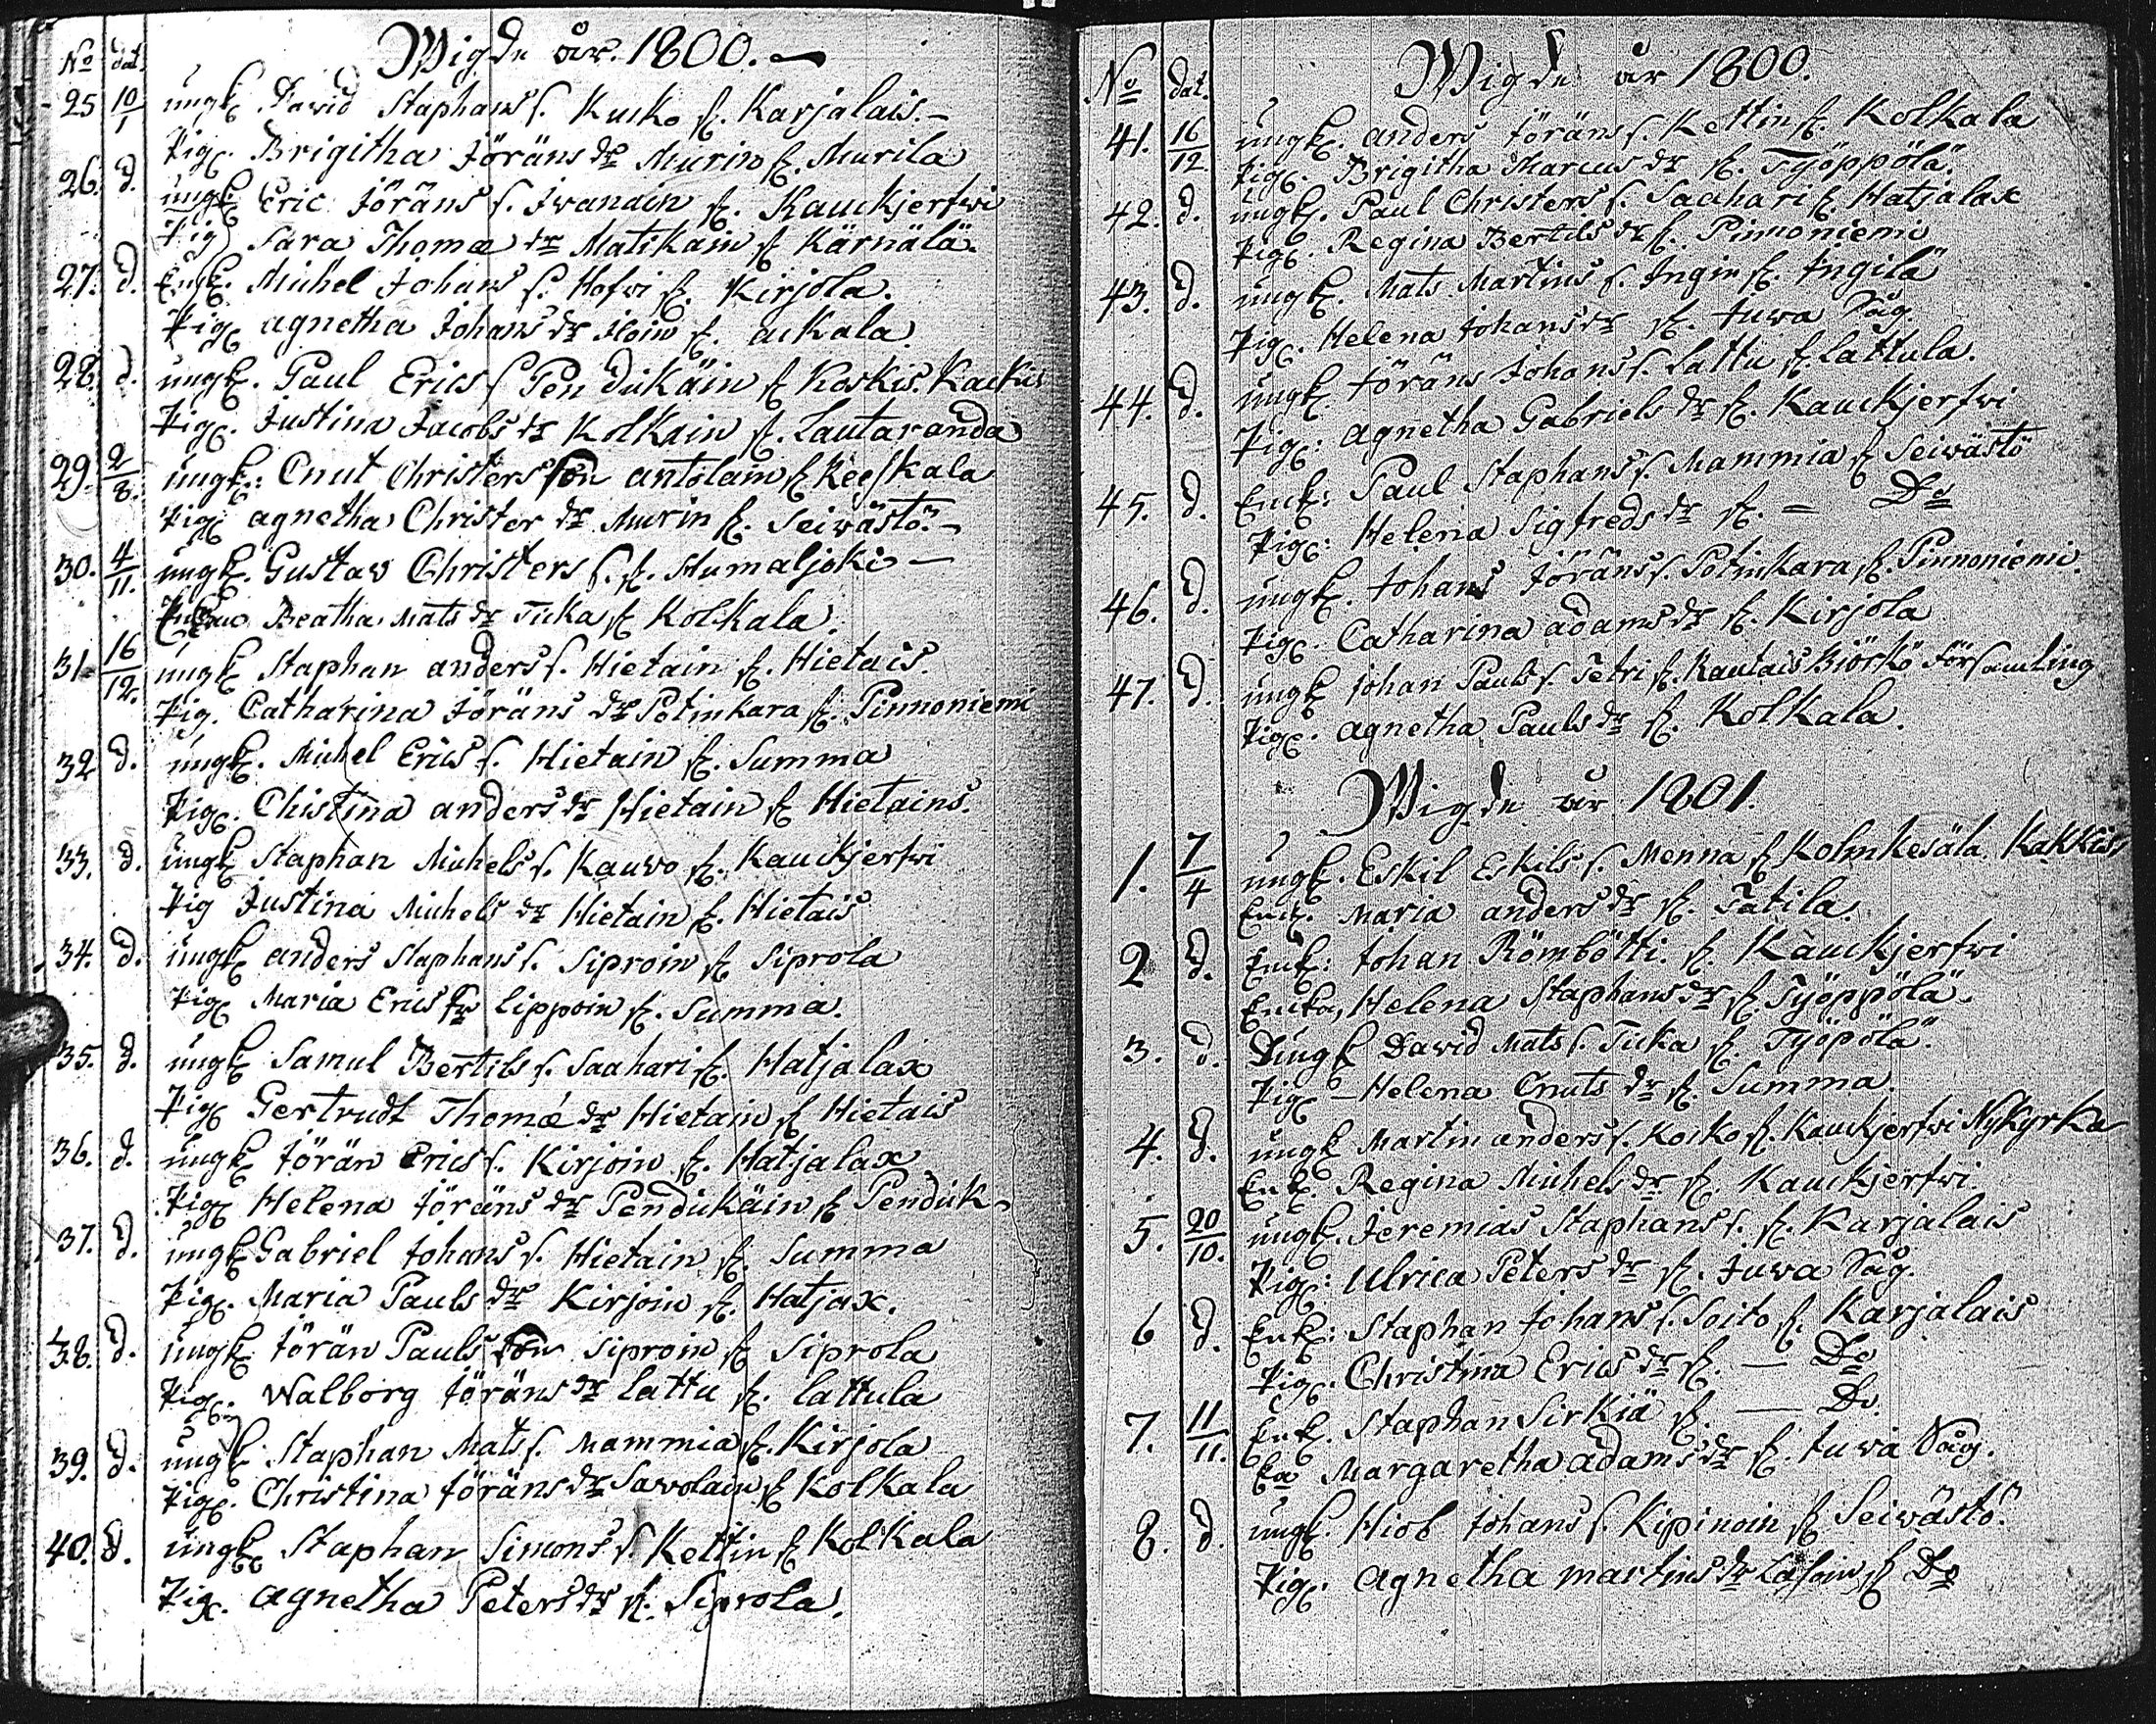 Wigde år. 1800. —
No dat.
25 10/1 ungk. David Staphans s. Kusko f. Karjalais. -
Pig. Brigitha Jöräns dr Murin f. Murila
26. d. ungk Eric Jöräns s. Iwanain f. Kauckjerfwi
Pig Sara Thomæ dr Matikain f Kärnälä.
27. d. Enk. Michel Johans s. Hofwi f. Kirjola.
Pig agnetha Johans dr f. ackala.
28. d. ungk. Paul Erics s Pendickäin f Koskis. Kackis
Pig. Justina Jacobs dr Kolkain f. Lautaranda
29. 2/8. ungk: Cnut Christers son antolain f Keeskala
Pig agnetha Christer dr Murin f. Seiwästö. -
30. 4/11. ungk. Gustav Christers s. f. Humaljoki —
Beatha Mats dr Ticka f Kolkala.
31 16/12. ungk Staphan anders s. Hietain f. Hietais.
Pig. Catharina Jöräns dr Potinkara f. Pinnoniemi
32 d. ungk. Michel Erics s. Hietain f. Summa
Pig. Chistina anders dr Hietain f Hietains.
33. d. ungk Staphan Michels s. Kauwo f. Kauckjerfwi
Pig Justina Michels dr Hietain f. Hietais
34. d. ungk anders Staphans s. Siproin f Siprola
Pig Maria Erics dr Lippoin f. Summa.
35. d. ungk Samul Bertils s. Saahari f. Hatjalax
Pig Gertrudt Thomæ dr Hietain f Hietais
36. d. ungk Jörän Erics s. Kirjoin f. Hatjalax
Pig Helena Jöräns dr Pendickäin f Pendick-
37. d. ungk Gabriel Johans s. Hietain f. Summa
Pig. Maria Pauls dr Kirjoin f. Hatjax.
38. d. ungk Jörän Pauls son Siproin f Siprola
Pig. Walborg Jöräns dr Lattu f. Lattula
39. d. ungk Staphan Mats s. Mammia f. Kirjola
Pig. Christina Jöräns dr Savolain f Kolkala
40. d. ungk Staphan Simons s. Kettin f Kolkala
Pig. agnetha Peters dr f. Siprola.
Wigde år 1800.
No dat.
41. 16/12 ungk. anders Jöräns s. Kettin f. Kolkala
Pig. Brigitha Marcus dr f. Työppölä.
42. d. ungk. Paul Christers s. Saahari f. Hatjalax
Pig. Regina Bertils dr f. Pinnoniemi
43. d. ungk. Mats Martins s. Ingin f. Ingilä
Pig. Helena Johans dr f. Juwa Såg.
44. d. ungk Jöräns Johans s. Lattu f. Lattula.
Pig: agnetha Gabriels dr f. Kauckjerfwi
45. d. Enck: Paul Staphans s. Mammia f Seiwästö
Pig: Helena Sigfreds dr f. = Do
46. d. ungk. Johans Jöräns s. Potinkara f. Pinnoniemi.
Pig. Catharina adams dr f. Kirjola
47. d. ungk Johan Pauls s. Petri f. Kautais Björkö Församling
Pig. agnetha Pauls dr f. Kolkala.
Wigde år 1801.
1. 7/4 ungk. Eskil Eskils s. Menna f Kolmkesäla. Kakkis
Enk. Maria anders dr f. Tatila.
2 d. Enck: Johan Römbötti. f. Kauckjerfwi
Encka, Helena Staphans dr f. Työppölä.
3. d. Dungk David Mats s. Ticka f. Työpölä.
Pig - Helena Cnuts dr f. Summa.
4. d. ungk Martin anders s. Kosko f. Kauckjerfwi Nykyrka
Enk. Regina Michels dr f. Kauckjerfwi.
5. 20/10. ungk. Jeremias Staphans s. f. Karjalais
Pig: Ulrica Peters dr f. Juwa Såg.
6 d. Enk: Staphan Johans s. Soito f. Karjalais
Pig. Christina Erics dr f. — Do
7. 11/11. Enk. Staphan Sirkiä f. — Do.
Ea Margaretha adams dr f. Juwa Såg.
8. d. ungk. Hiob Johans s. Kipinoin f Seiwästö.
Pig. agnetha martins dr f Do